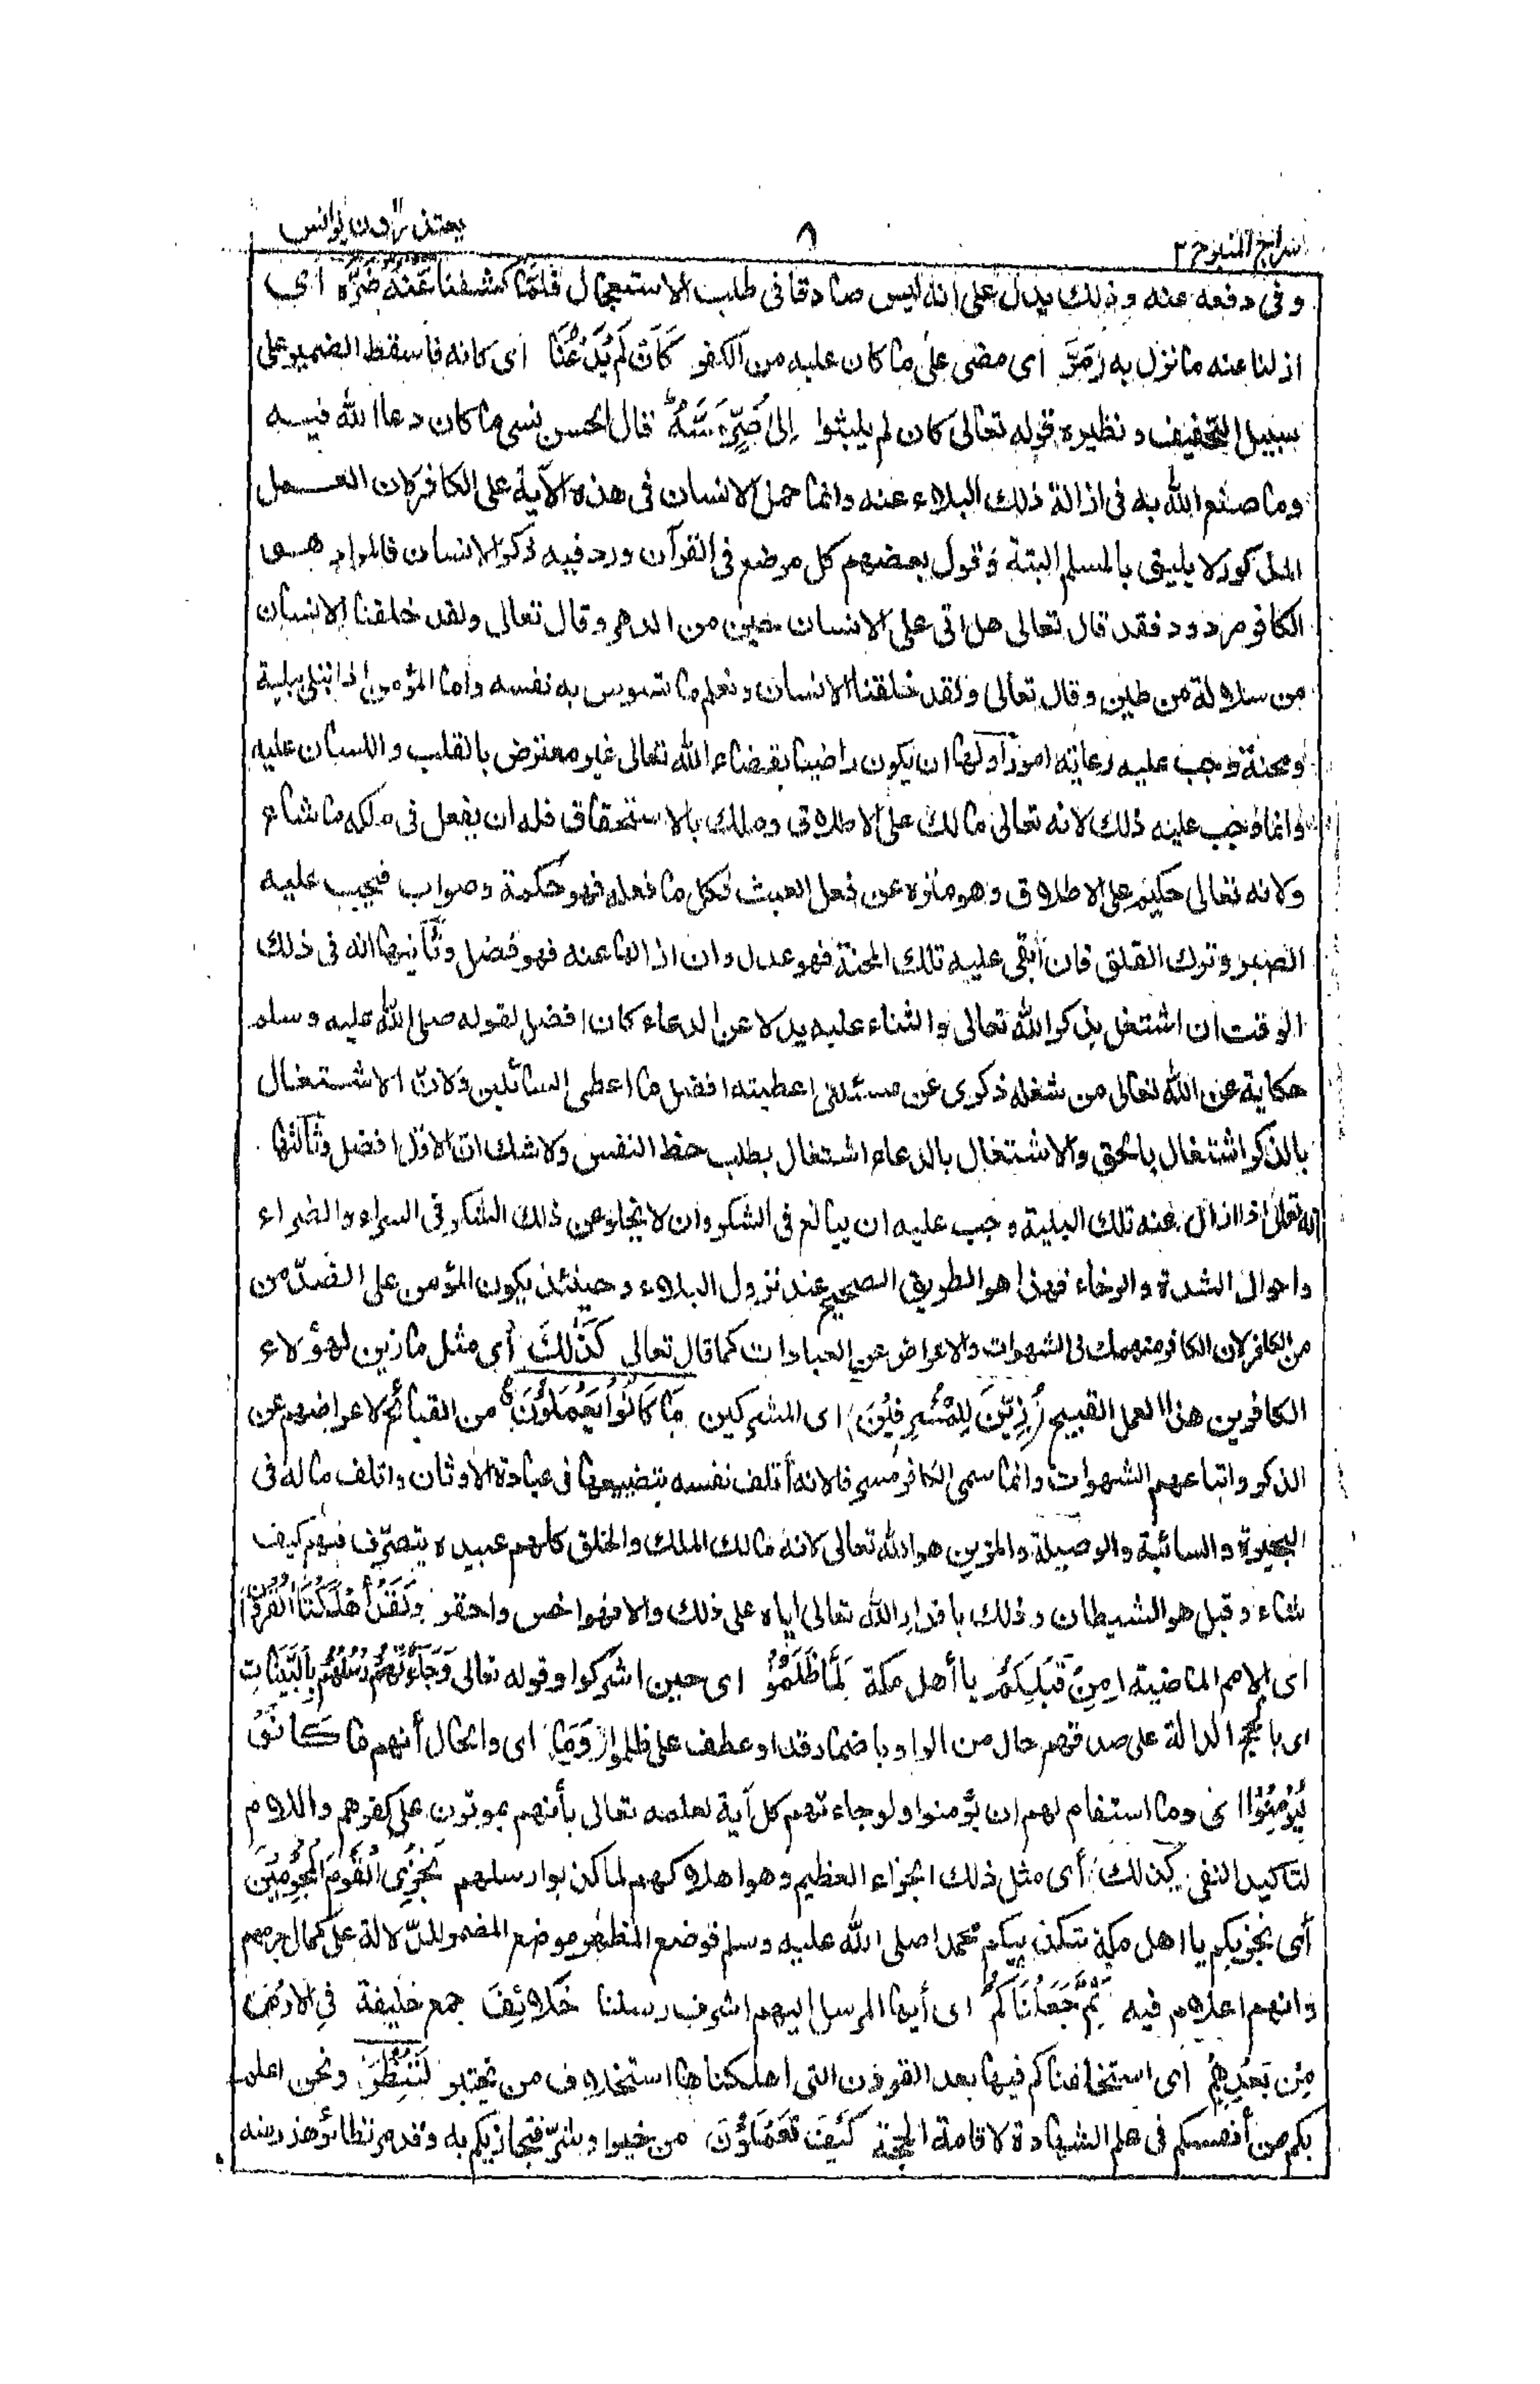 سراج المنير ج ٢
٨
يعتذرون يونس
وفى دفعه عنه وذلك يدل على انه ليس صادقا فى طلب الاستعجال فَلَمَّا كَشَفْنَا عَنْهُ ضُرَّهُ اى
ازلنا عنه ما نزل به مَرَّ اى مضى على ما كان عليه من الكفر كَأَنْ لَمْ يَدْعُنَا اى كانه فاسقط الضمير على
سبيل التخفيف ونظيره قوله تعالى كان لم يلبثوا إِلَى ضُرٍّ مَسَّهُ قال الحسن نسى ما كان دعا الله فيه
وما صنع الله به فى ازالة ذلك البلاء عنه وانما حمل الانسان فى هذه الآية على الكافر لان العمل
المذكور لا يليق بالمسلم البتة وقول بعضهم كل موضع فى القرآن ورد فيه ذكر الانسان فالمراد هو
الكافر مردود فقد قال تعالى هل اتى على الانسان حين من الدهر وقال تعالى ولقد خلقنا الانسان
من سلالة من طين وقال تعالى ولقد خلقنا الانسان ونعلم ما توسوس به نفسه واما المؤمن اذا ابتلى ببلية
ومحنة وجب عليه رعاية امور اولها ان يكون راضيا بقضاء الله تعالى غير معترض بالقلب واللسان عليه
وانما وجب عليه ذلك لانه تعالى مالك على الاطلاق وملك بالاستحقاق فله ان يفعل فى ملكه ما شاء
ولانه تعالى حكيم على الاطلاق وهو منزه عن فعل العبث فكل ما فعله فهو حكمة وصواب فيجب عليه
الصبر وترك القلق فان أبقى عليه تلك المحنة فهو عدل وان ازالها عنه فهو فضل وثانيها انه فى ذلك
الوقت ان اشتغل بذكر الله تعالى والثناء عليه بدلا عن الدعاء كان افضل لقوله صلى الله عليه وسلم
حكاية عن الله تعالى من شغله ذكرى عن مسئلتى اعطيته افضل ما اعطى السائلين ولان الاشتغال
بالذكر اشتغال بالحق والاشتغال بالدعاء اشتغال بطلب حظ النفس ولا شك ان الاول افضل وثالثها
انه تعالى اذا ازال عنه تلك البلية وجب عليه ان يبالغ فى الشكر وان لا يخلو عن ذلك الشكر فى السراء والضراء
واحوال الشدة والرخاء فهذا هو الطريق الصحيح عند نزول البلاء وحينئذ يكون المؤمن على الضدّ من
من الكافر لان الكافر منهمك فى الشهوات والاعراض عن العبادات كما قال تعالى كَذَلِكَ أى مثل ما زين لهؤلاء
الكافرين هذا العمل القبيح زُيِّنَ لِلْمُسْرِفِينَ اى المشركين مَا كَانُوا يَعْمَلُونَ من القبائح لاعراضهم عن
الذكر واتباعهم الشهوات وانما سمى الكافر مسرفا لانه أتلف نفسه بتضييعها فى عبادة الاوثان واتلف ماله فى
البحيرة والسائبة والوصيلة والمزين هو الله تعالى لانه مالك الملك والخلق كلهم عبيده يتصرّف فيهم كيف
شاء وقيل هو الشيطان وذلك باقدار الله تعالى اياه على ذلك والا فهو اخس واحقر وَلَقَدْ أَهْلَكْنَا الْقُرُونَ
اى الامم الماضية مِنْ قَبْلِكُمْ يا أهل مكة لَمَّا ظَلَمُوا اى حين اشركوا وقوله تعالى وَجَاءَتْهُمْ رُسُلُهُمْ بِالْبَيِّنَاتِ
اى بالحجج الدالة على صدقهم حال من الواو باضمار قد او عطف على ظلموا وَمَا اى والحال أنهم ما كَانُوا
لِيُؤْمِنُوا اى وما استقام لهم ان يؤمنوا ولو جاءتهم كل آية لعلمه تعالى بأنهم يموتون على كفرهم واللام
لتاكيد النفى كَذَلِكَ أى مثل ذلك الجزاء العظيم وهو اهلاكهم لما كذبوا رسلهم نَجْزِي الْقَوْمَ الْمُجْرِمِينَ
أى نجزيكم يا اهل مكة بتكذيبكم محمدا صلى الله عليه وسلم فوضع المظهر موضع المضمر للدّلالة على كمال جرمهم
وانهم اعلام فيه ثُمَّ جَعَلْنَاكُمْ اى أيها المرسل اليهم اشرف رسلنا خَلَائِفَ جمع خليفة فِي الْأَرْضِ
مِنْ بَعْدِهِمْ اى استخلفناكم فيها بعد القرون التى اهلكناها استخلاف من يختبر لِنَنْظُرَ ونحن اعلم
بكم من أنفسكم فى علم الشهادة لاقامة الحجة كَيْفَ تَعْمَلُونَ من خير او شرّ فنجازيكم به وقد مر نظائر هذ